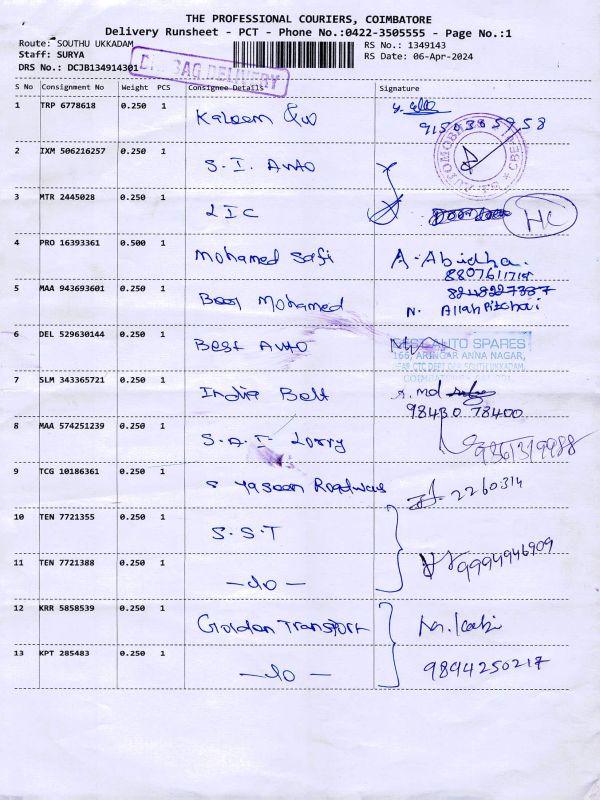 THE PROFESSIONAL COURIERS, COIMBATORE
Delivery Runsheet - PCT - Phone No.:0422-3505555 - Page No.:1
Route: SOUTHU UKKADAM
RS No.: 1349143
Staff: SURYA
RS Date: 06-Apr-2024
DRS No.: DCJB134914301
BAG DELIVERY
S No Consignment No Weight PCS Consignee Details Signature
1 TRP 6778618 0.250 1 Kaleem
2 IXM 506216257 0.250 1 S. I. Auto
3 MTR 2445028 0.250 1 LIC HC
4 PRO 16393361 0.500 1 Mohamed Safi A. Abidha.
5 MAA 943693601 0.250 1 Beer Mohamed
N. Allah Pitchai
6 DEL 529630144 0.250 1 Best Auto AUTO SPARES
166, ARINGAR ANNA NAGAR,
7 SLM 343365721 0.250 1 India Belt
98430 78400
8 MAA 574251239 0.250 1 S.A.I- Lorry
9361319988
9 TCG 10186361 0.250 1 S Yaseen Roadways 2260314
10 TEN 7721355 0.250 1 S.S.T
11 TEN 7721388 0.250 1 -do- 9994946909
12 KRR 5858539 0.250 1 Golden Transport
13 KPT 285483 0.250 1 -do- 9894250217